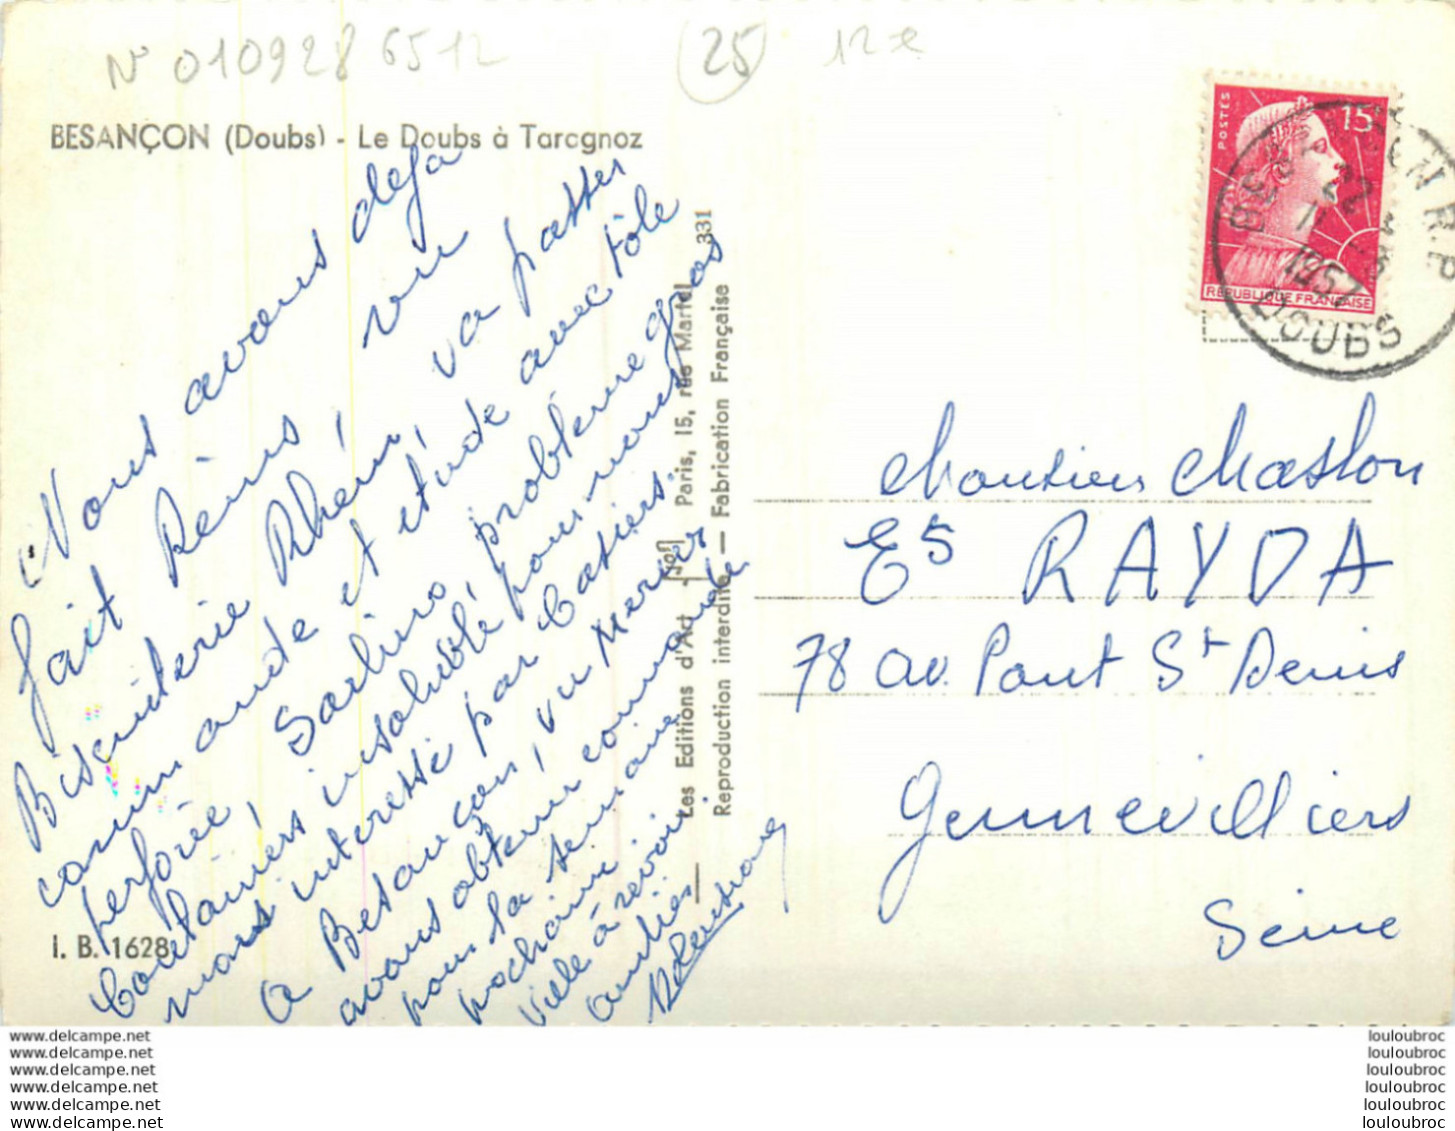 N° 0109286512
25
12e
BESANÇON (Doubs) - Le Doubs à Taragnoz
POSTES
15F
REPUBLIQUE FRANÇAISE
BESANCON R.P.
1957
DOUBS
Nous avons deja
fait Reims, vu
Biscuiterie Rhém, va passer
commande et etude avec tôle
perforée, Sarlino, problème gros
Coulaines insoluble pour nous
mais interessé par Casiers
a Besancon, vu Mercier
avons obtenu commande
pour la semaine
prochaine
Ville à revoir
amitiés
Les Editions d'Art - Paris, 15, rue Martel 331
Reproduction interdite — Fabrication Française
Monsieur Masson
ES RAYDA
78 av. Pont St Denis
Gennevilliers
Seine
I. B. 1628
www.delcampe.net
www.delcampe.net
www.delcampe.net
www.delcampe.net
www.delcampe.net
www.delcampe.net
louloubroc
louloubroc
louloubroc
louloubroc
louloubroc
louloubroc